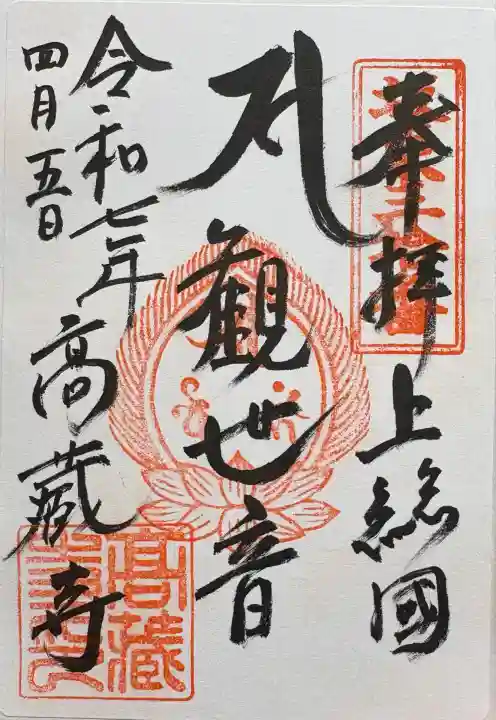 奉拝
上総國
観世音
令和七年
四月五日
高蔵寺
高蔵